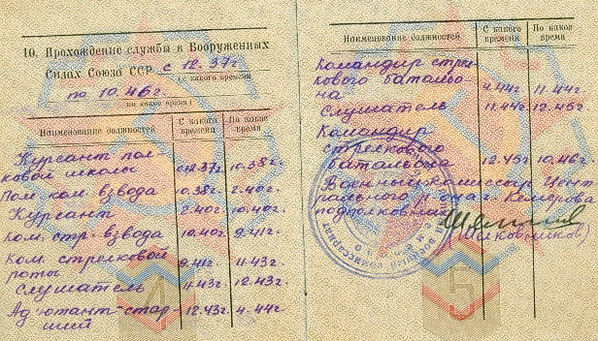 10. Прохождение службы в Вооруженных
Силах Союза ССР с 12.37г.
(с какого времени
по 10.46г.
по какое время)
Наименование должностей С какого времени По какое время
Курсант пол-
ковой школы 12.37г. 10.38г.
Пом. ком. взвода 10.38г. 2.40г.
Курсант 2.40г. 10.40г.
Ком. стр. взвода 10.40г. 9.41г.
Ком. стрелковой
роты 9.41г. 11.43г.
Слушатель 11.43г. 12.43г.
Адъютант стар-
ший 12.43г. 4.44г.
4
Наименование должностей С какого времени По какое время
Командир стрел-
кового батальо-
на 4.44г. 11.44г.
Слушатель 11.44г. 12.45г.
Командир
стрелкового
батальона 12.45г. 10.46г.
Военный комиссар Цент
рального р-она г. Кемерова
подполковник
(Шелковников)
5